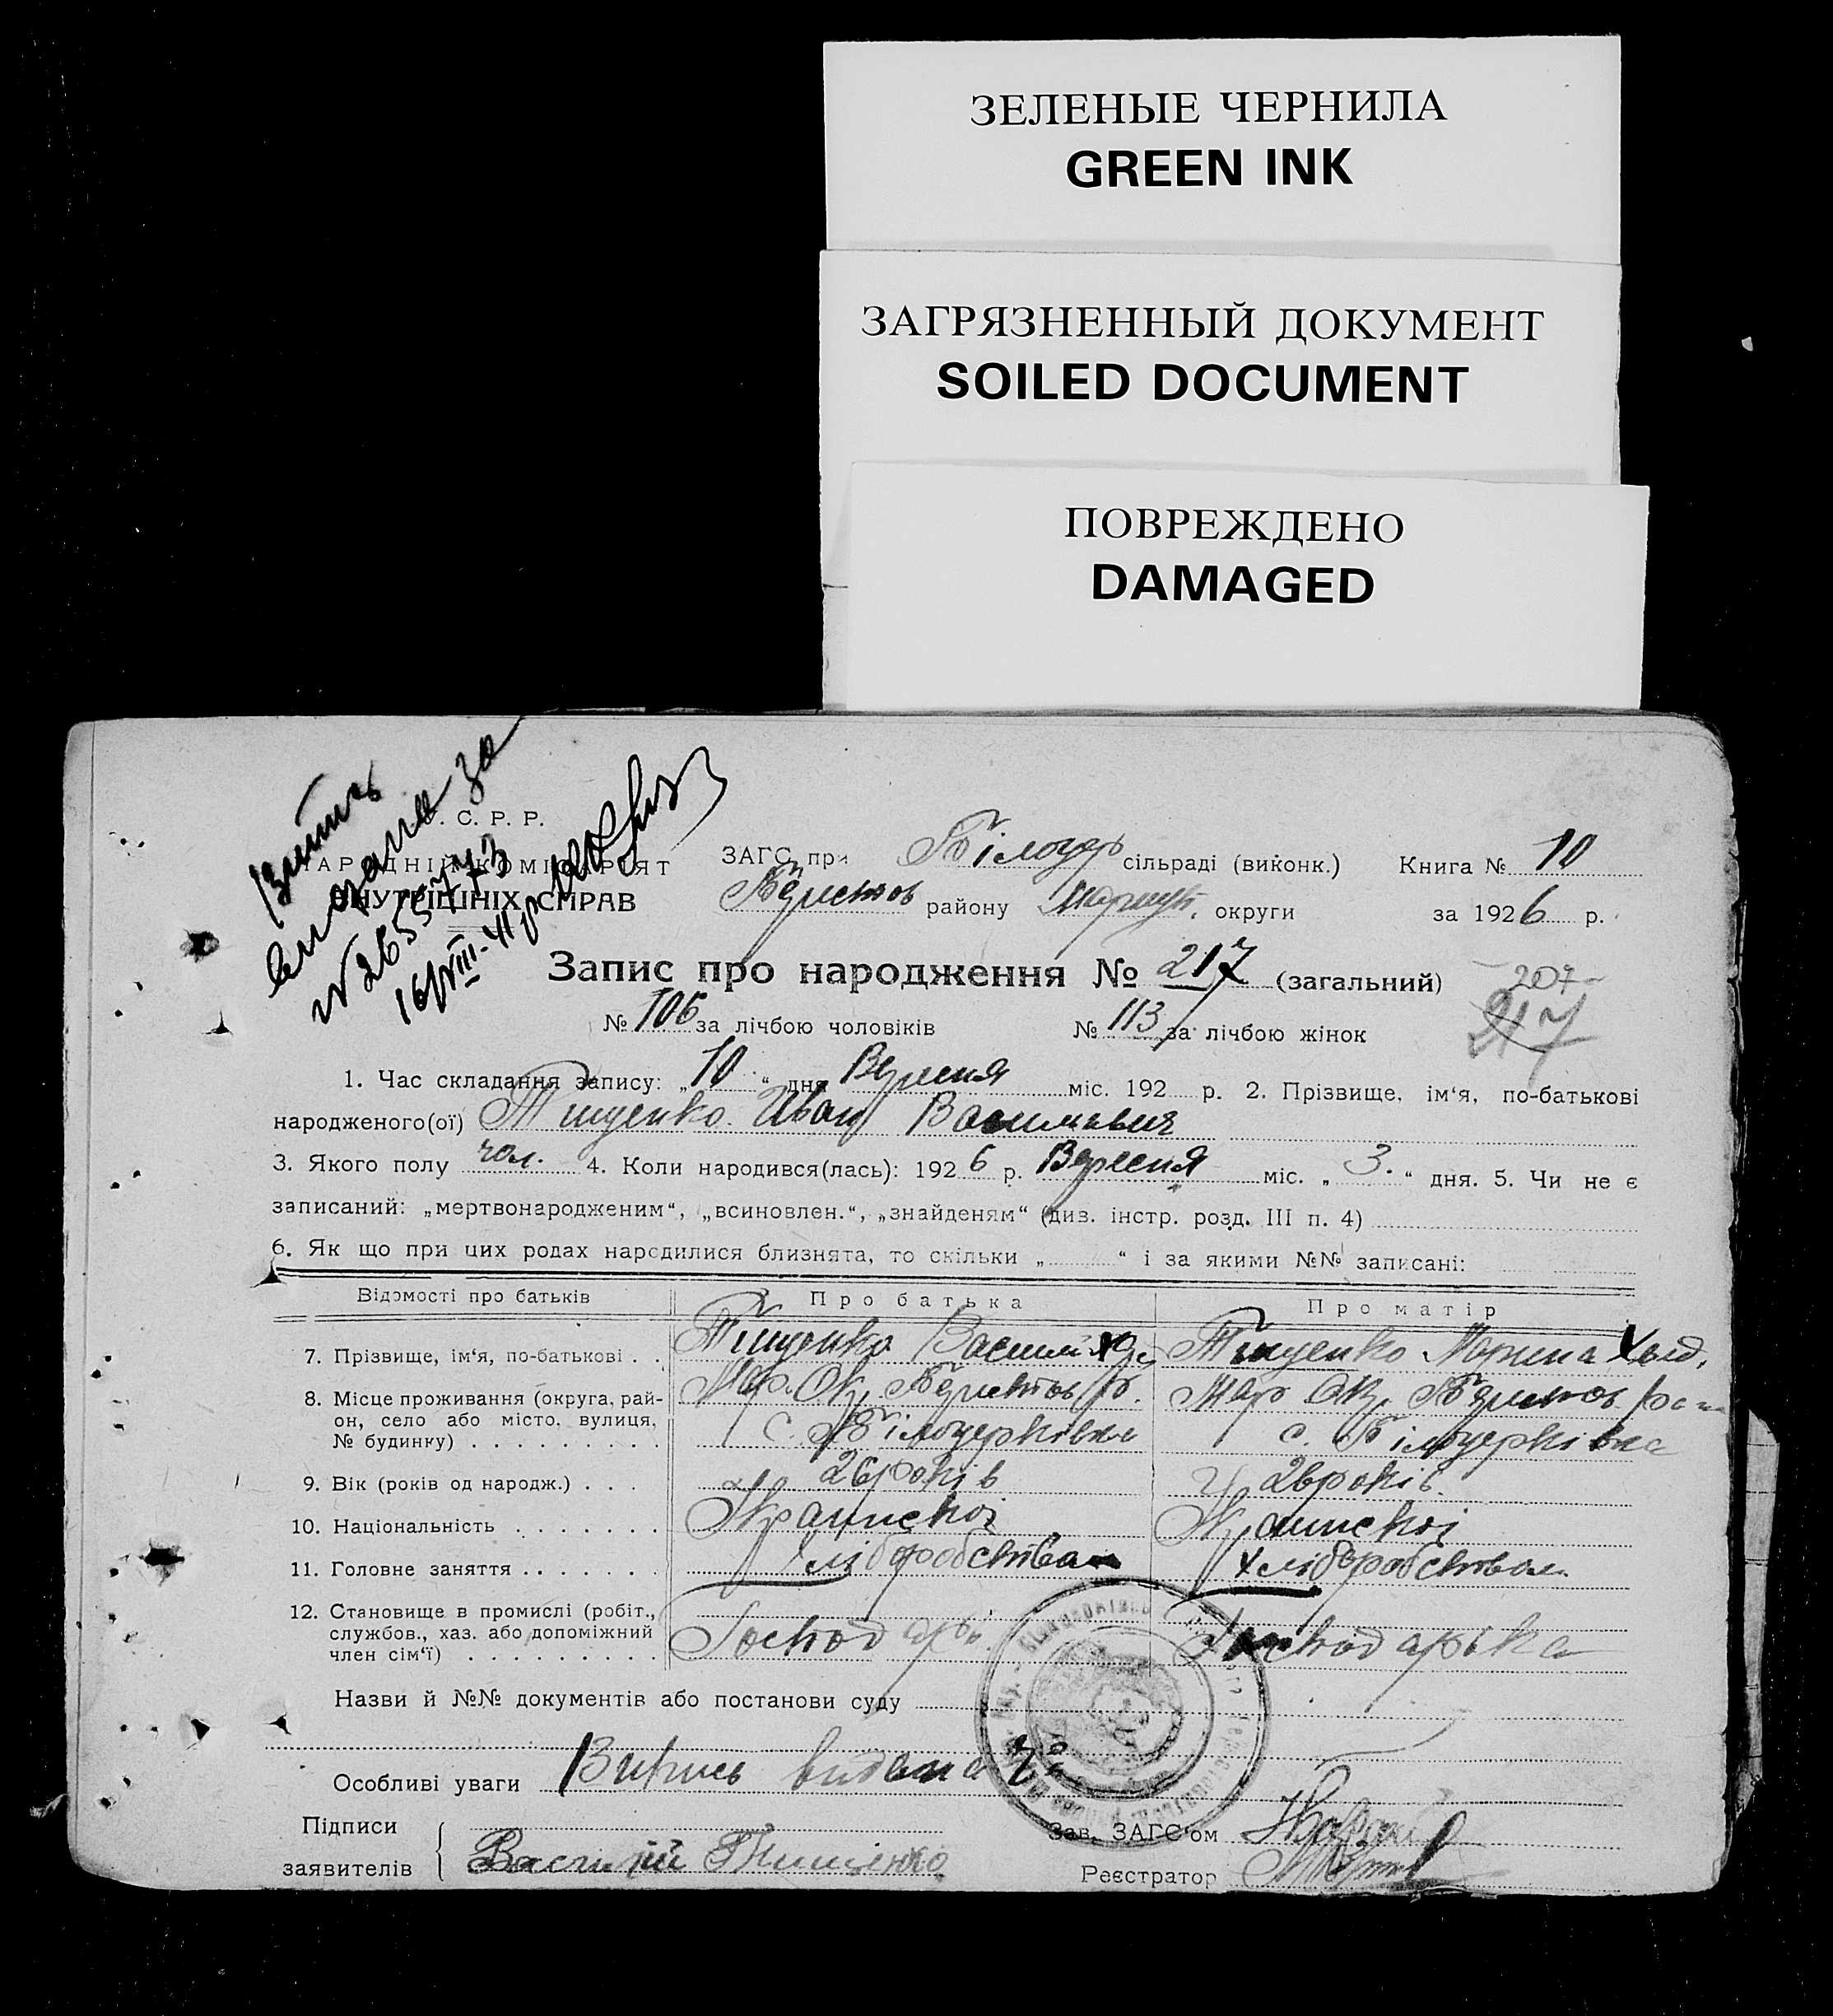 ЗЕЛЕНЫЕ ЧЕРНИЛА
GREEN INK
ЗАГРЯЗНЕННЫЙ ДОКУМЕНТ
SOILED DOCUMENT
ПОВРЕЖДЕНО
DAMAGED
. С. Р. Р.
АРОДНІЙ КОМІСАРІЯТ
ВНУТРІШНІХ СПРАВ
видана за
№ 265573
16/VIII-41р
ЗАГС при Білоцер сільраді (виконк.) Книга № 10
району Маріуп. округи за 1926 р.
Запис про народження № 217 (загальний) 207
217
№ 106 за лічбою чоловіків № 113 за лічбою жінок
1. Час складання запису: „10“ дня Вересня міс. 192 р. 2. Прізвище, ім‘я, по-батькові
народженого(ої) Тищенко Иван Васильевич
3. Якого полу чол. 4. Коли народився(лась): 1926 р. Вересня міс. „3.“ дня. 5. Чи не є
записаний: „мертвонародженим“, „всиновлен.“, „знайденям“ (див. інстр. розд. III п. 4)
6. Як що при цих родах народилися близнята, то скільки „ “ і за якими №№ записані:
Відомості про батьків Про батька Про матір
7. Прізвище, ім‘я, по-батькові . . Тищенко Тищенко Марина
8. Місце проживання (округа, рай- Мар. Ок. Мар Ок.
он, село або місто, вулиця, с. Білоцерківка с. Білоцерківка
№ будинку) . . . . . . . . .
9. Вік (років од народж.) . . . 26 років 26 років
10. Національність . . . . . . . Украинскої Украинскої
11. Головне заняття . . . . . . . Хліборобством хліборобством
12. Становище в промислі (робіт.,
службов., хаз. або допоміжний Господарь Господарька
член сім‘ї) . . . . . . . . .
Назви й №№ документів або постанови суду
Особливі уваги Випись видана
Підписи Зав. ЗАГС‘ом
заявителів Василій Тищенко Реєстратор